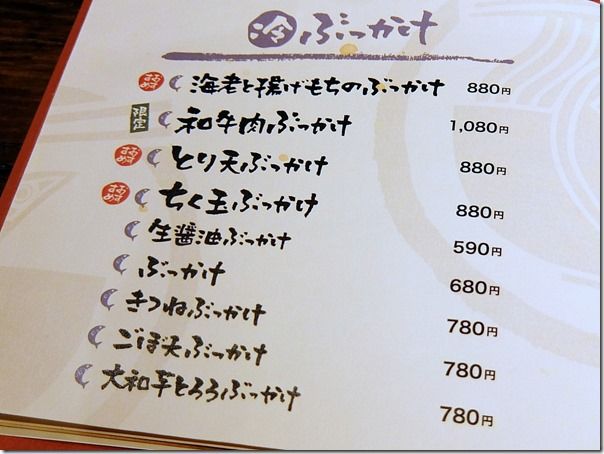 冷 ぶっかけ
おすすめ 海老と揚げもちのぶっかけ 880円
限定 和牛肉ぶっかけ 1,080円
おすすめ とり天ぶっかけ 880円
おすすめ ちく玉ぶっかけ 880円
生醤油ぶっかけ 590円
ぶっかけ 680円
きつねぶっかけ 780円
ごぼ天ぶっかけ 780円
大和芋とろろぶっかけ 780円